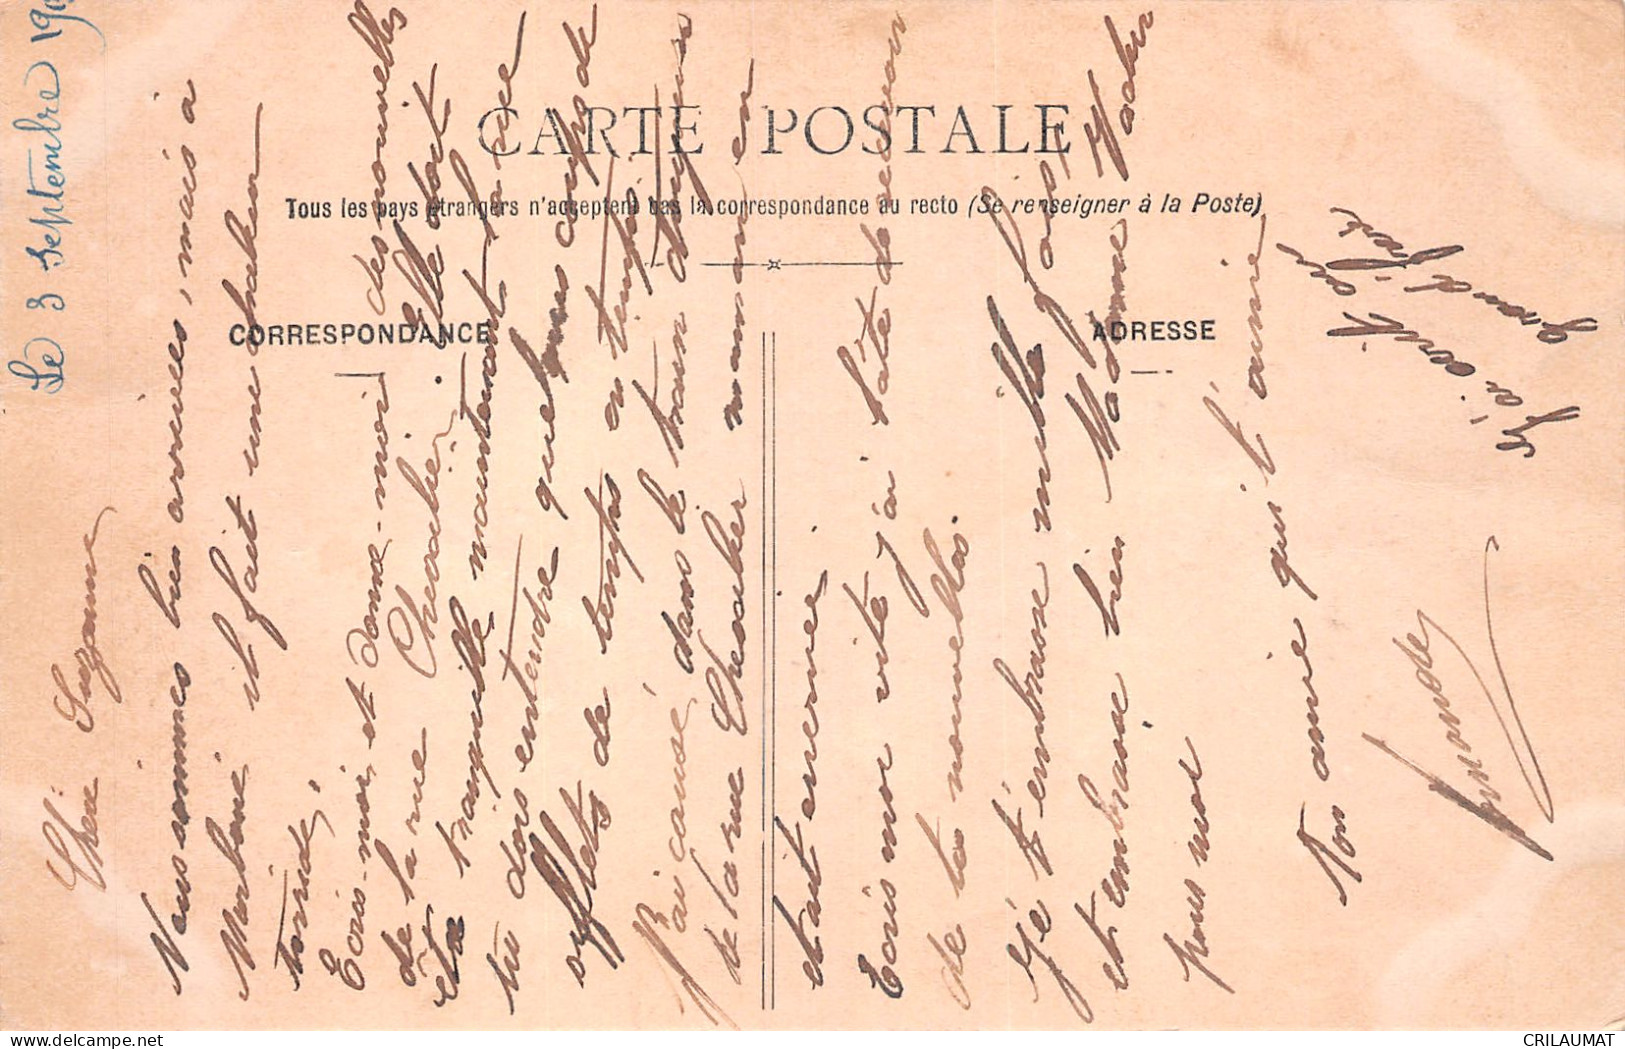 Le 3 septembre 19
CARTE POSTALE
Tous les pays étrangers n'acceptent pas la correspondance au recto (Se renseigner à la Poste)
CORRESPONDANCE
ADRESSE
Chère Suzanne
Nous sommes bien arrivées, mais à
il fait une chaleur
torride,
Ecris-moi, et donne-moi des nouvelles
de la rue Chevalier. Elle doit
être tranquille maintenant la rue
tu dois entendre quelques coups de
sifflets de temps en temps
J'ai causé dans le train
de la rue Chevalier maman en
était énervée
Ecris moi vite j'ai hâte de
de tes nouvelles.
Je t'embrasse mille fois,
et embrasse bien Madame
pour moi
Ton amie qui t'aime
J'ai écrit
CRILAUMAT